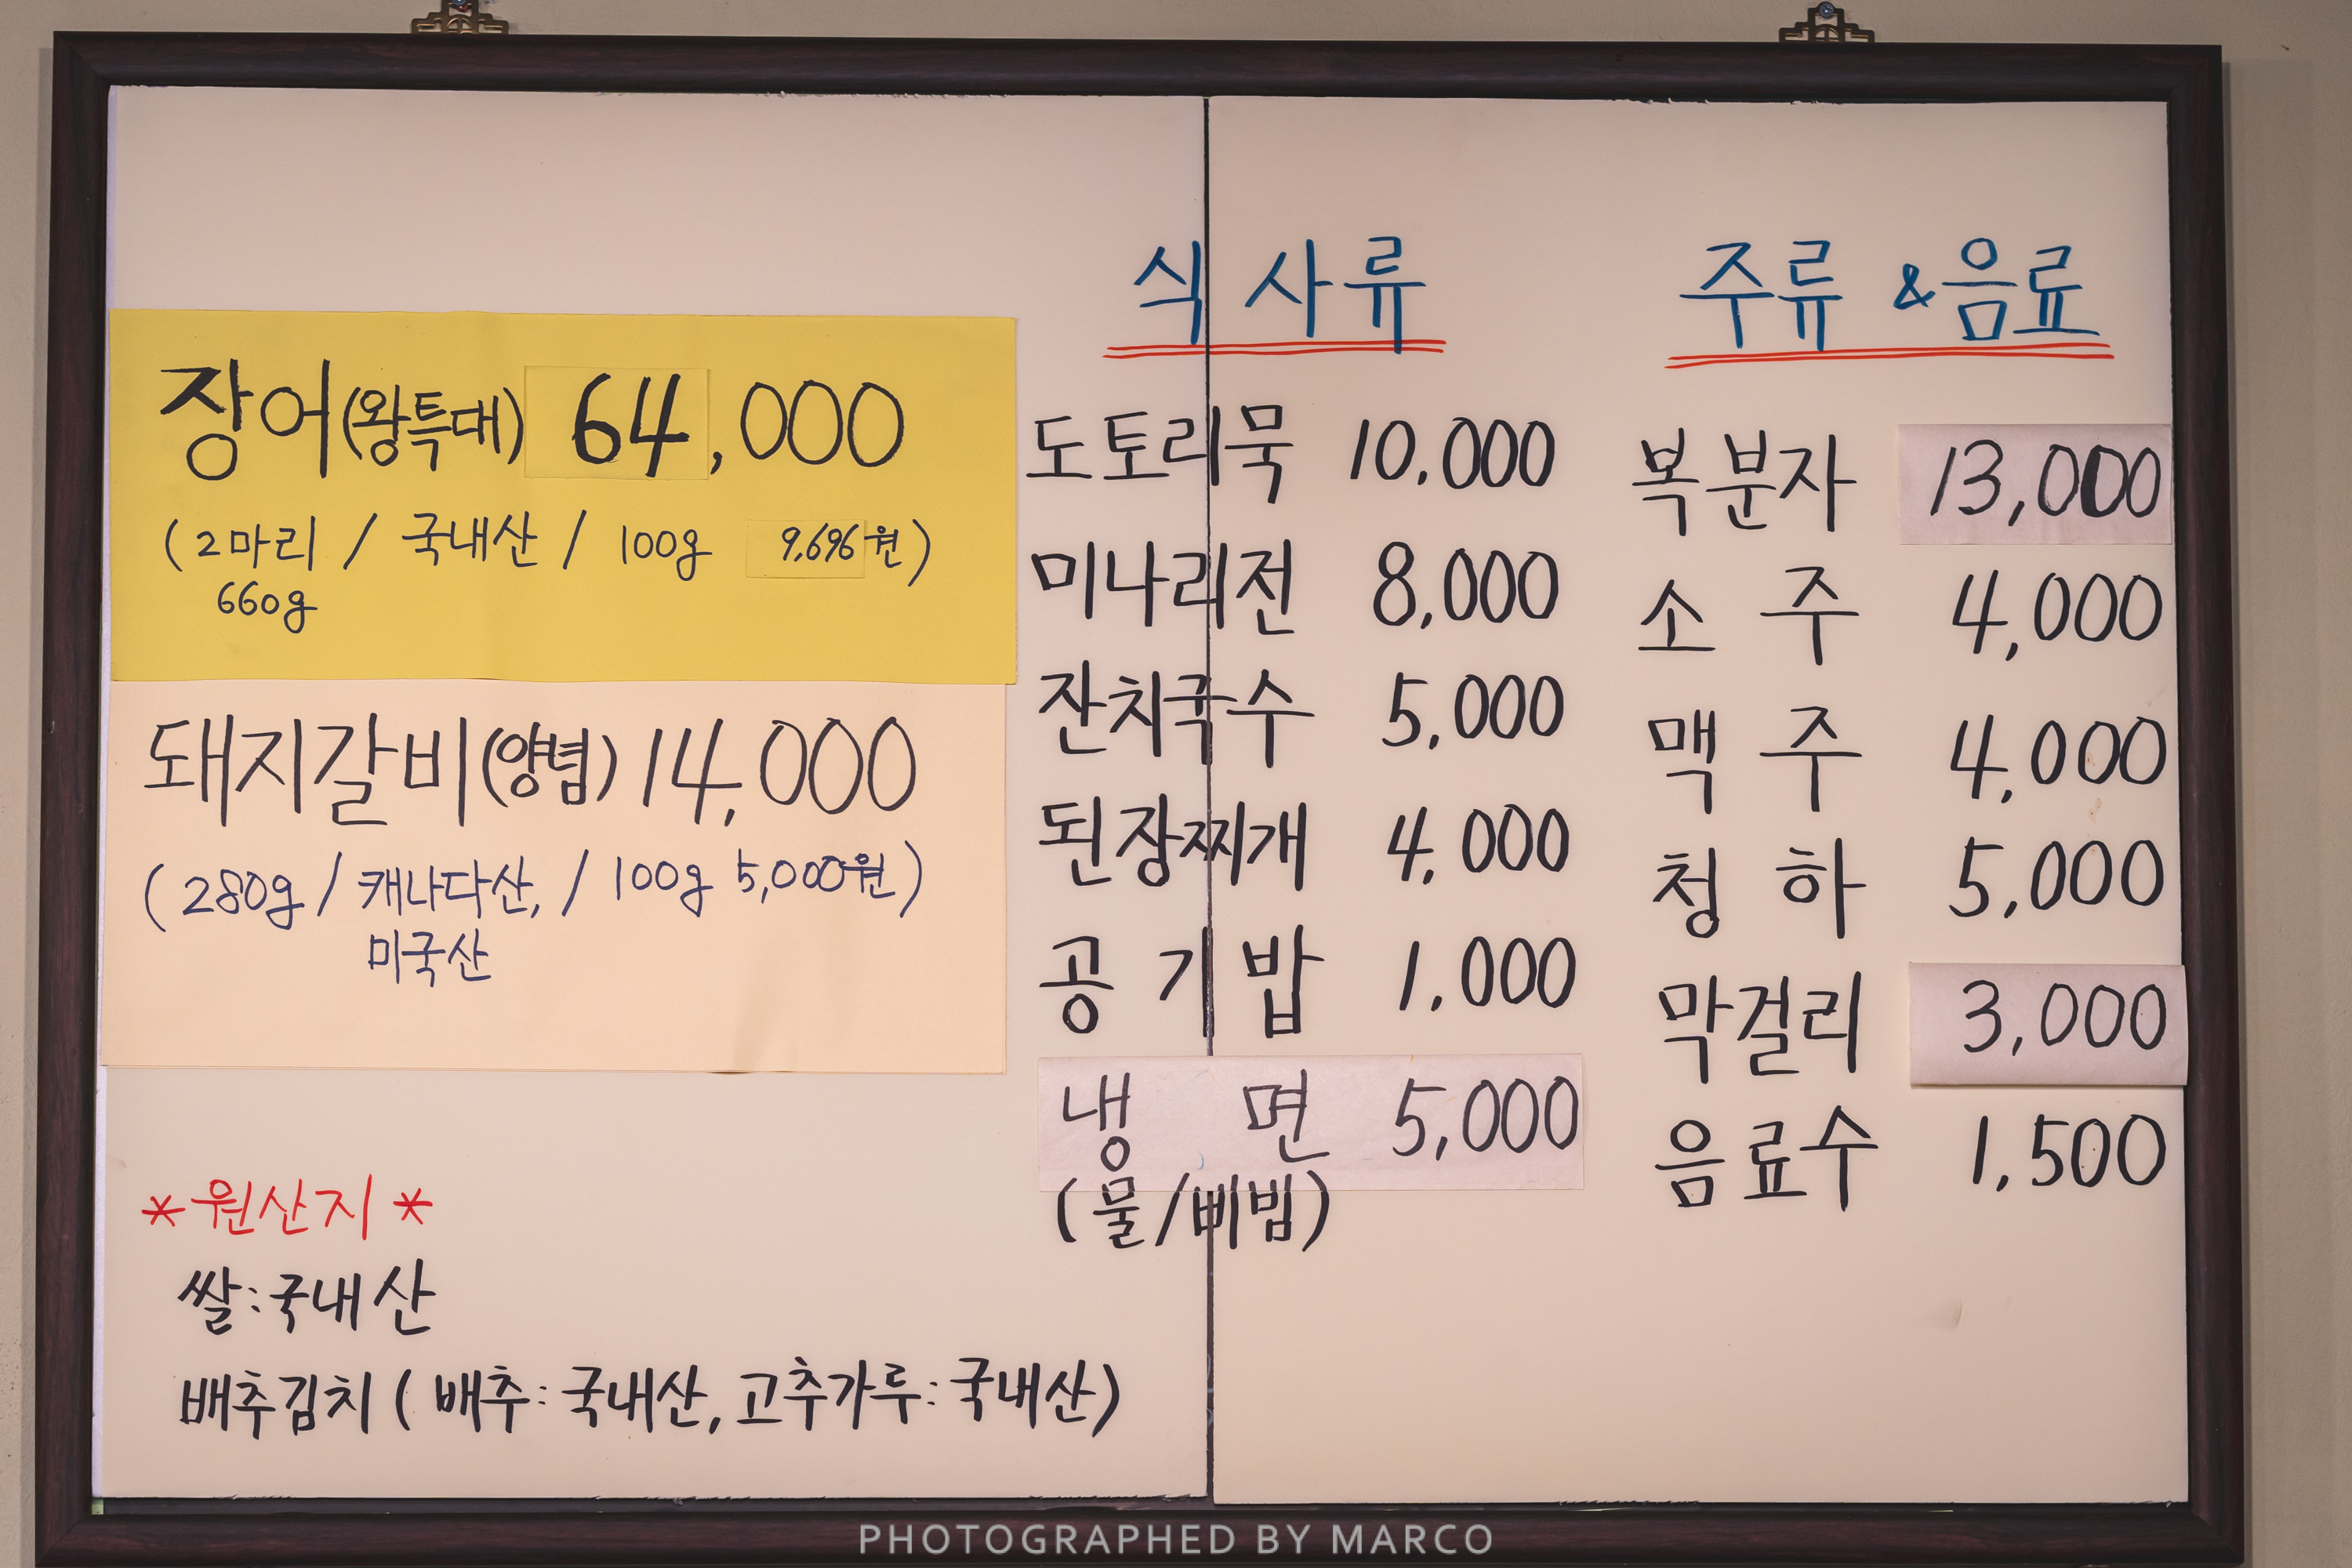 장어(왕특대) 64,000
(2마리 / 국내산 / 100g 9,696원)
660g
돼지갈비(양념) 14,000
(280g / 캐나다산, / 100g 5,000원)
미국산
*원산지*
쌀:국내산
배추김치( 배추: 국내산, 고추가루: 국내산)
식사류
도토리묵 10,000
미나리전 8,000
잔치국수 5,000
된장찌개 4,000
공기밥 1,000
냉면 5,000
(물/비빔)
주류 & 음료
복분자 13,000
소주 4,000
맥주 4,000
청하 5,000
막걸리 3,000
음료수 1,500
PHOTOGRAPHED BY MARCO